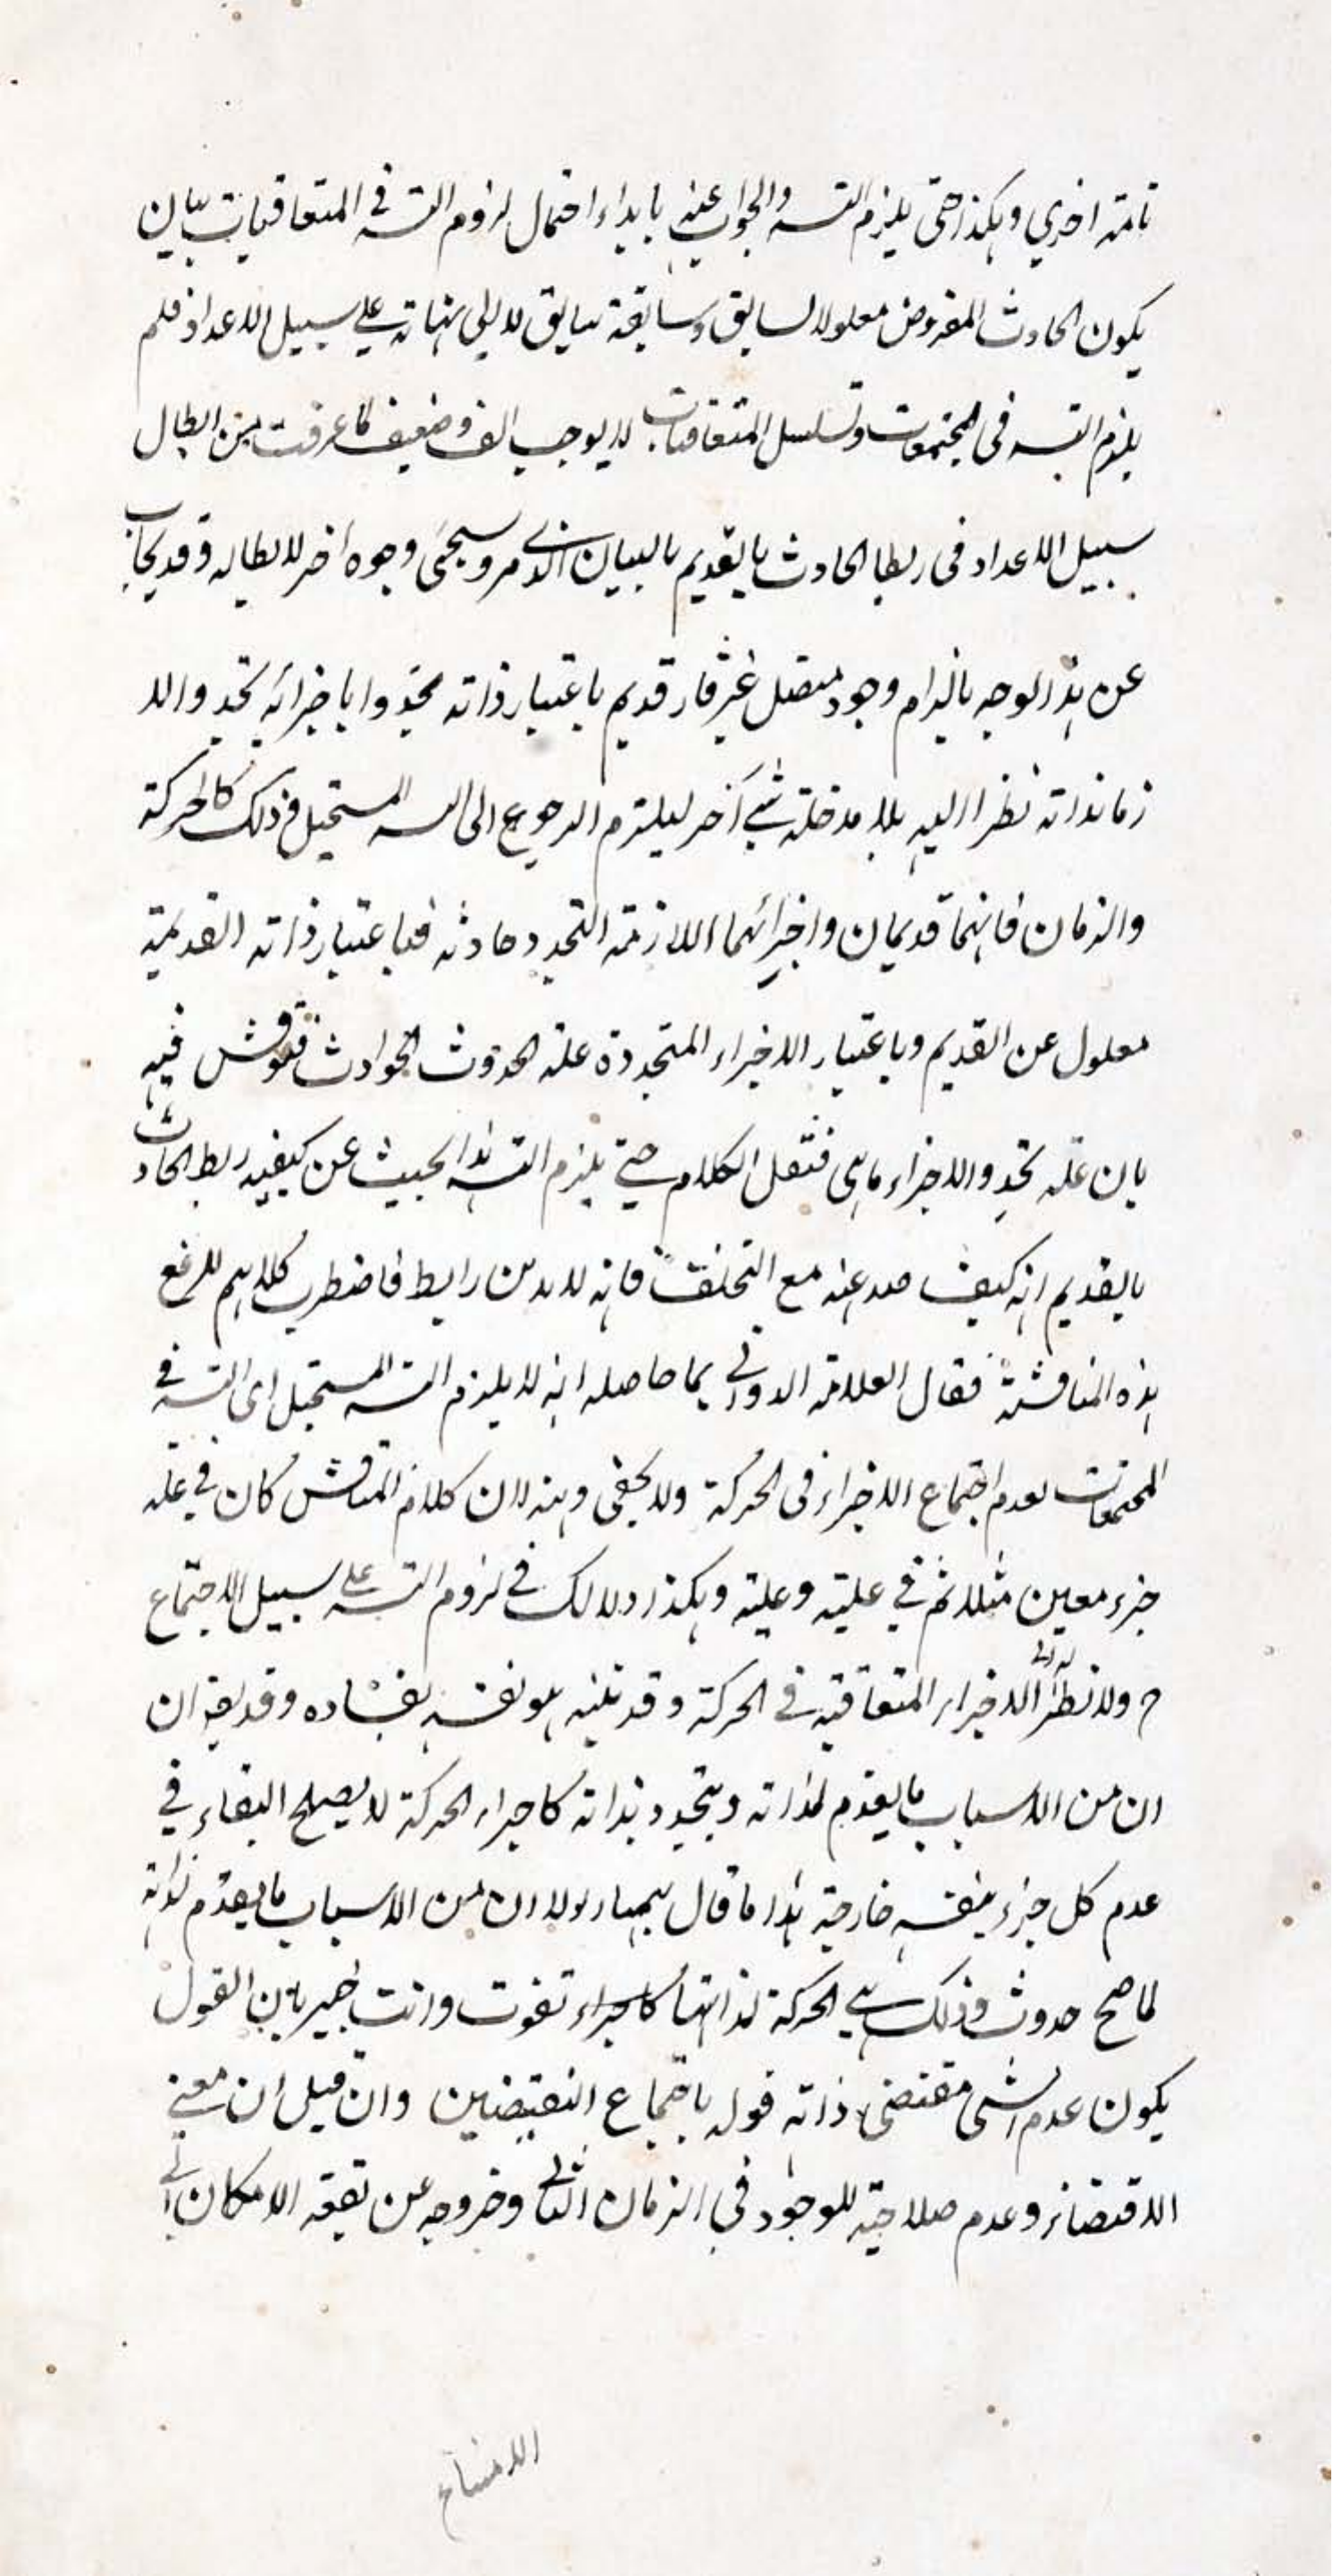 تامة اخري وهكذا حتى يلزم التسـ والجواب عنه بابداء احتمال لزوم التسـ في المتعاقبات بان
يكون الحادث المفروض معلولا لسابق وسابقة بسابق لا الى نهاية على سبيل الاعداد فلم
يلزم التسـ في المجتمعات وتسلسل المتعاقبات لا يوجب الخلف وضعيف لما عرفت من ابطال
سبيل الاعداد في ربط الحادث بالقديم بالبيان الذي مر وسيجئ وجوه اخر لابطاله وقد يجاب
عن هذا الوجه بالتزام وجود متصل غير قار قديم باعتبار ذاته متجددا باجزائه تجددا لا
زما لذاته نظرا اليه بلا مدخلة شئ آخر ليلتزم الرجوع الى التسـ المستحيل وذلك كالحركة
والزمان فانهما قديمان واجزائهما اللازمة التجدد حادثه فباعتبار ذاته القديمة
معلول عن القديم وباعتبار الاجزاء المتجددة علة لحدوث الحوادث فنوقش فيه
بان علة تجدد الاجزاء ما هي فننقل الكلام حتى يلزم التسـ هذا البحث عن كيفية ربط الحادث
بالقديم انه كيف صدر عنه مع التخلف فانه لا بد من رابط فاضطرب كلامهم لدفع
هذه المناقشة فقال العلامة الدواني بما حاصله انه لا يلزم التسـ المستحيل اى التسـ في
المجتمعات لعدم اجتماع الاجزاء في الحركة ولا يخفى وهنه لان كلام المناقش كان في علة
جزء معين مثلا ثم في علية وعلية وهكذا ولا شك في لزوم التسـ على سبيل الاجتماع
ح ولا نظر له الى الاجزاء المتعاقبة في الحركة وقد تنبه هو نفسه بفساده وقد يقرر ان
ان من الاسباب ما يعدم لذاته ويتجدد بذاته كاجزاء الحركة لا يصلح البقاء في
عدم كل جزء بنفسه خارجية هذا ما قال بهمنيار لولا ان من الاسباب ما يعدم لذاته
لما صح حدوث وذلك هي الحركة لذاتها كاجزاء تفوت وانت خبير بان القول
بكون عدم الشئ مقتضى ذاته قول باجتماع النقيضين وان قيل ان معنى
الاقتضاء وعدم صلاحية للوجود في الزمان الثاني وخروجه عن بقعة الامكان الى
الامتناع